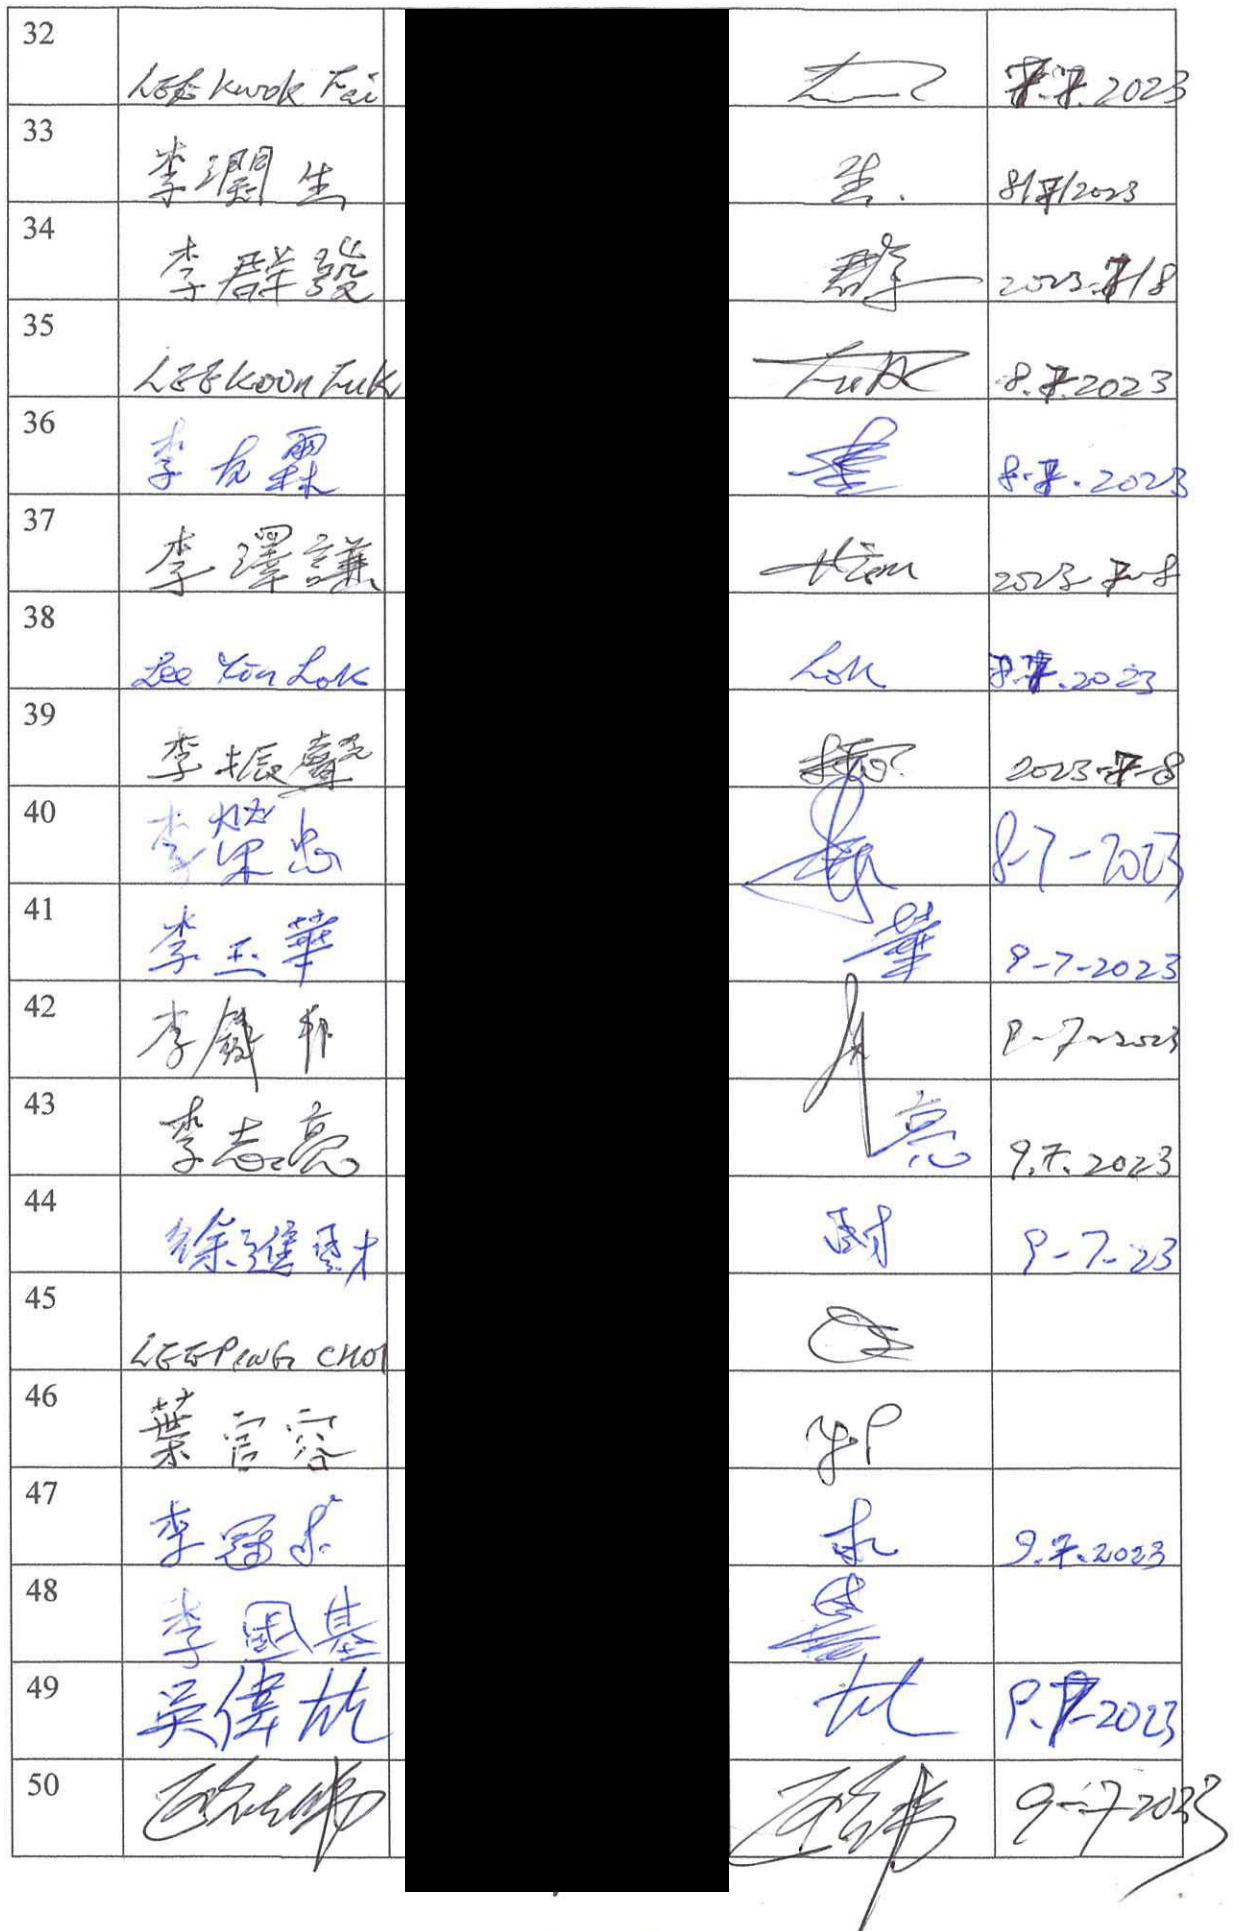 32 LEE Kwok Fai 2023
33 李潤生 生. 8/7/2023
34 李群發 群 2023-7/8
35 LEE KOON FUK Fuk 8.7.2023
36 李友霖 8.7.2023
37 李澤謙 Him 2023-7-8
38 Lee Yin Lok Lok 2023
39 李振聲 2023-7-8
40 李榮忠 8-7-2023
41 李玉華 華 9-7-2023
42 李 9-7-2023
43 李志亮 亮 9.7.2023
44 徐進財 財 9-7-23
45 LEE PING CHOI
46 葉官容 yip
47 李冠求 求 9.7.2023
48 李國基
49 吳偉 9.7-2023
50 9-7-2023